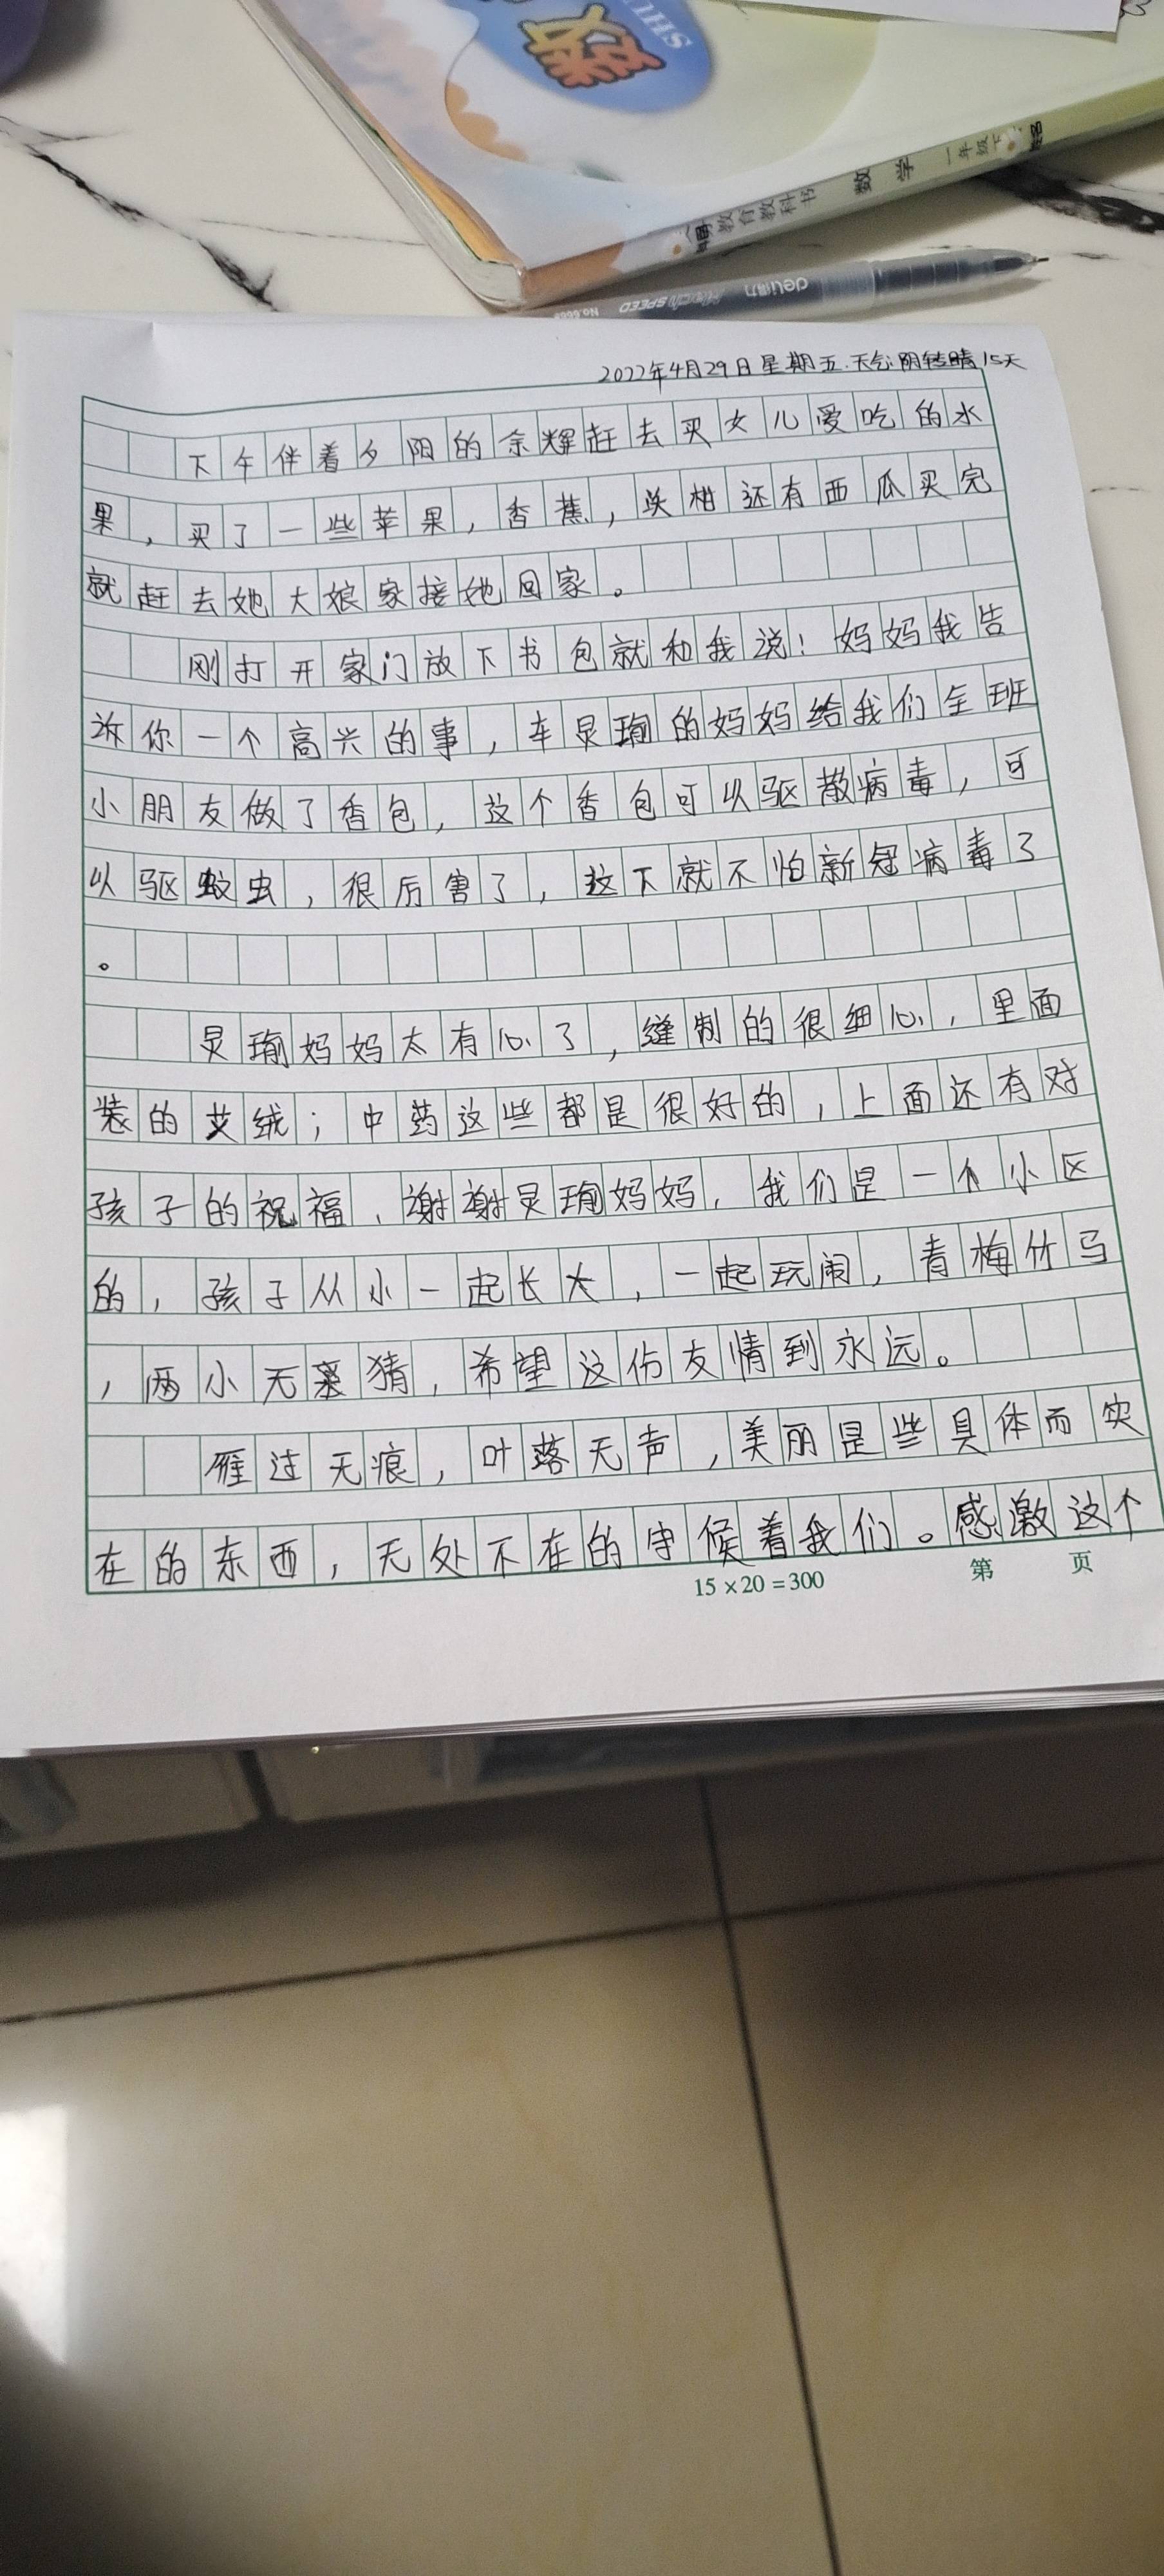 数
SHU
义务教育教科书 数学 一年级下册
No.6666 Mach SPEED deli得力
2022年4月29日星期五.天气:阴转晴15天
下午伴着夕阳的余辉赶去买女儿爱吃的水
果，买了一些苹果，香蕉，耙柑还有西瓜买完
就赶去她大娘家接她回家。
刚打开家门放下书包就和我说！妈妈我告
诉你一个高兴的事，车炅瑜的妈妈给我们全班
小朋友做了香包，这个香包可以驱散病毒，可
以驱蚊虫，很厉害了，这下就不怕新冠病毒了
。
炅瑜妈妈太有心了，缝制的很细心，里面
装的艾绒；中药这些都是很好的，上面还有对
孩子的祝福、谢谢炅瑜妈妈，我们是一个小区
的，孩子从小一起长大，一起玩闹，青梅竹马
，两小无猜，希望这份友情到永远。
雁过无痕，叶落无声，美丽是些具体而实
在的东西，无处不在的守候着我们。感激这个
15×20=300
第 页